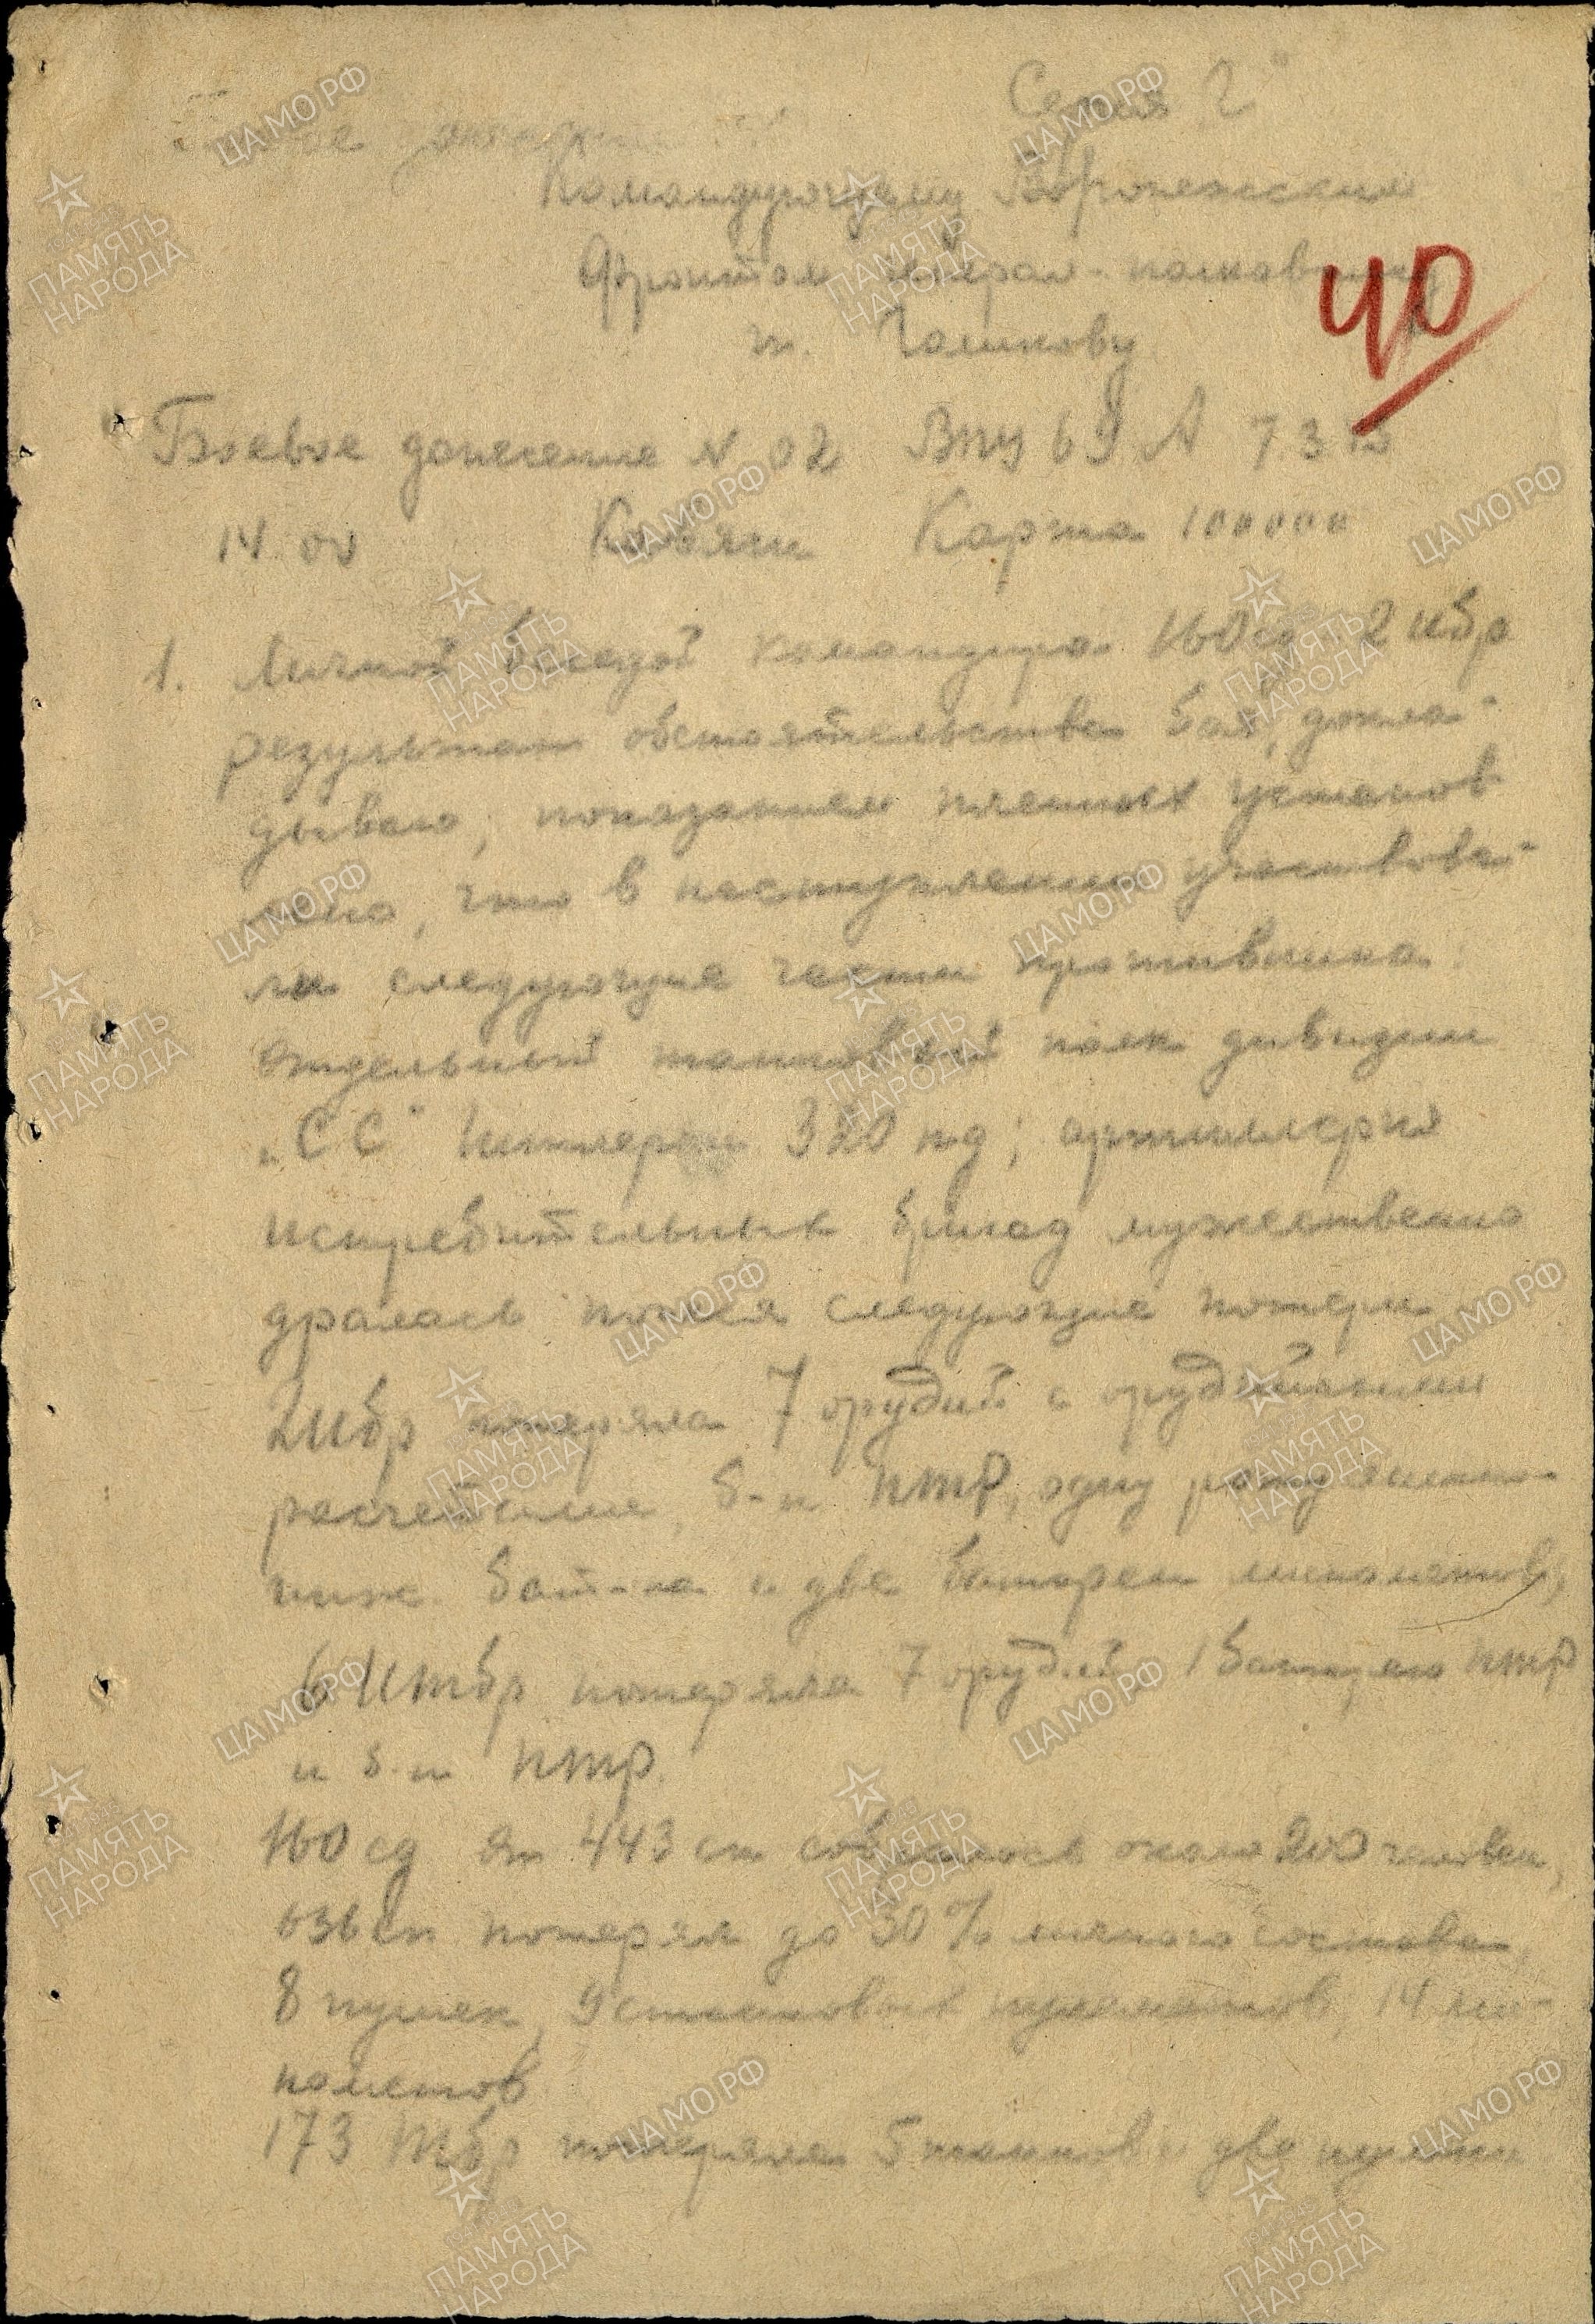 Серия Г"
Командующему Воронежским
фронтом генерал-полковнику
т. Голикову
40
Боевое донесение N 02 ВПУ 69 А 7.3
14.00 Карта 100000
1. Личной беседой командира 160 сд 2 ибр
результат обстоятельства боя, докла-
дываю, показанием пленных установ
лено, что в наступлении участвова-
ли следующие части противника:
отдельный танковый полк дивизии
„СС" 320 пд; артиллерия
истребительных бригад мужественно
дралась понеся следующие потери
2 ибр потеряла 7 орудий с орудийными
расчетами, б-н ПТР, одну роту
инж. бат-на и две батареи минометов,
6 Иптбр потеряла 7 орудий 1 ПТР
и б-н ПТР.
160 сд от 443 сп собралось около 200 человек,
636 сп потерял до 30% личного состава,
8 пушек, 9 станковых пулеметов, 14 ми-
нометов
173 тбр потеряла 5 танков и две пушки
ЦАМО РФ
ПАМЯТЬ
НАРОДА